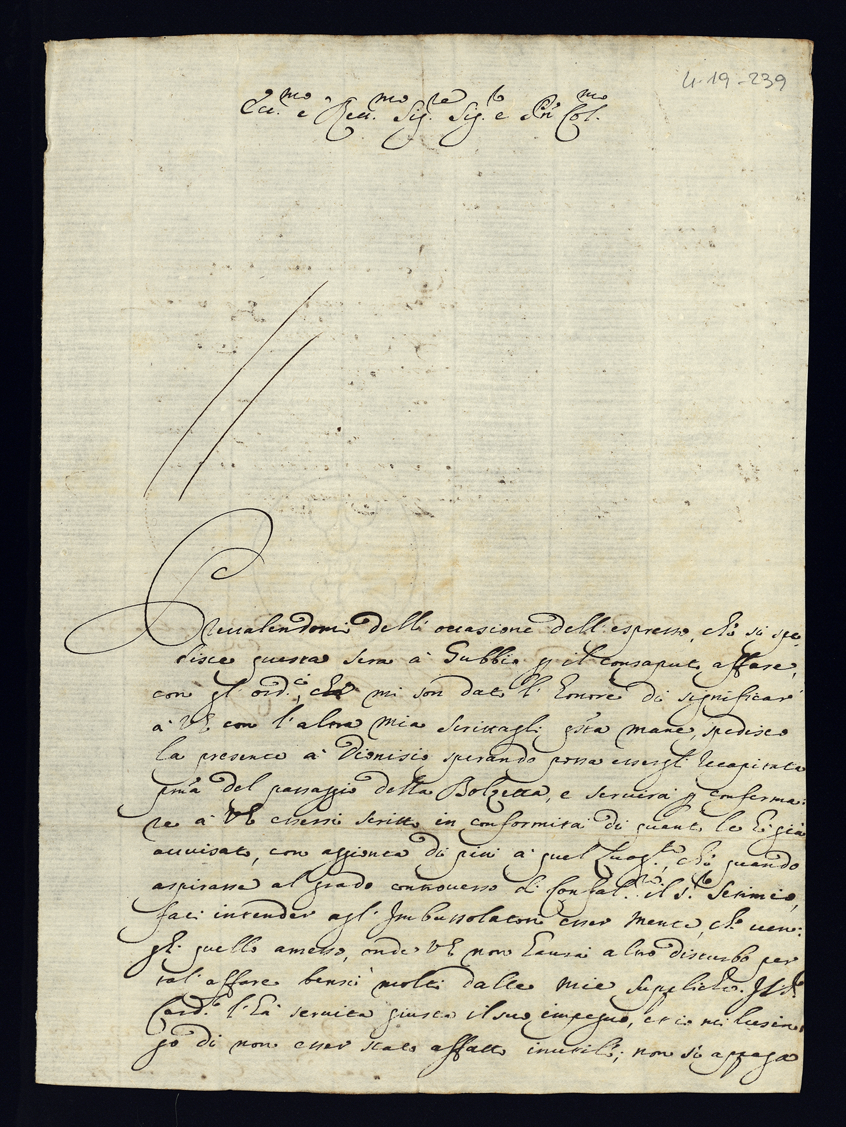 4-19-239
Ecc.mo e Rev.mo Sig.re Sig.r e Pñ Col.mo
Prevalendomi dell'occasione dell'espresso, che si spe-
disce questa sera à Gubbio p il consaputo affare,
con gl'ord.i, che mi son dato l'honore di significar
à VE con l'altra mia scrittagli q'sta mane, spedisco
la presente à Dionisio sperando possa essergli recapitata
p'ma del passaggio della Bolgetta, e servirà p conferma-
re à VE essersi scritto in conformità di quanto le hò già
avvisato, con aggionta di più à quel Luogt.e, che quando
aspirasse al grado controverso di Confal.re il s.r Settimio,
faci intender agl'Imbussolatori esser mente, che ven-
ghi quello amesso, onde VE non haurà altro disturbo per
tal affare bensì molti dalle mie suppliche. Il s.r
Card.e l'hà servita giusta il suo impegno, et io mi lusin-
go di non esser stato affatto inutile; non si appaga